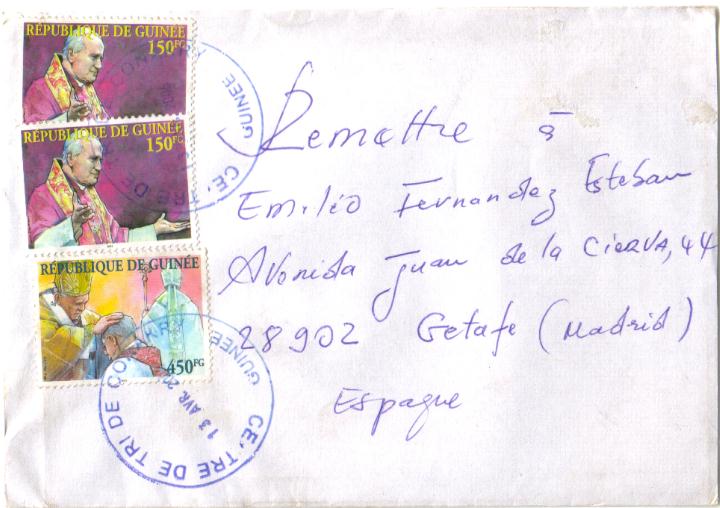 RÉPUBLIQUE DE GUINÉE
150FG
RÉPUBLIQUE DE GUINÉE
150FG
RÉPUBLIQUE DE GUINÉE
450FG
GUINEE CE. TRE DE
GUINEE CE. TRE DE TRI DE CO
13 AVR. 20
Remettre à
Emilio Fernandez Esteban
Avenida Juan de la CiERVA, 44
28902 Getafe (Madrid)
Espagne